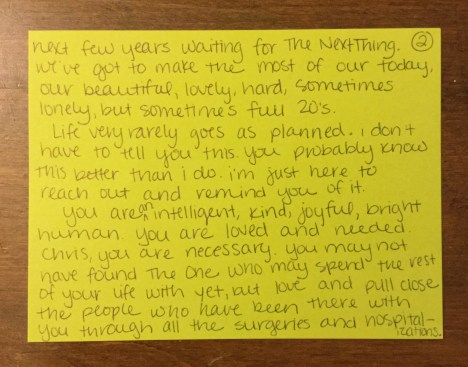 next few years waiting for The NextThing. ②
we've got to make the most of our today,
our beautiful, lovely, hard, sometimes
lonely, but sometimes full 20's.
Life very rarely goes as planned. i don't
have to tell you this. you probably know
this better than i do. i'm just here to
reach out and remind you of it.
you are an intelligent, kind, joyful, bright
human. you are loved and needed.
Chris, you are necessary. you may not
have found The One who may spend the rest
of your life with yet, but love and pull close
the people who have been there with
you through all the surgeries and hospital-
izations.